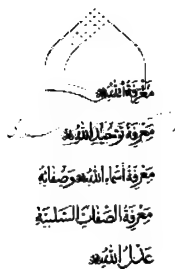 مَعْرِفَةُ اللّٰهِ
مَعْرِفَةُ تَوْحِيدِ اللّٰهِ
مَعْرِفَةُ أَسْمَاءِ اللّٰهِ وَصِفَاتِهِ
مَعْرِفَةُ الصِّفَاتِ السَّلْبِيَّةِ
عَدْلُ اللّٰهِ